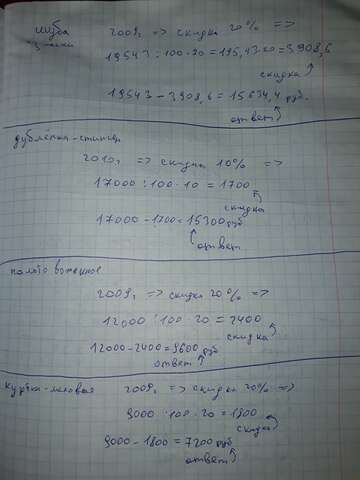 шуба 2009г => скидка 20% =>
19543 : 100 · 20 = 195,43 · 20 = 3908,6
скидка
19543 - 3908,6 = 15634,4 руб.
ответ
дублёнка-
2010г => скидка 10% =>
17000 : 100 · 10 = 1700
скидка
17000 - 1700 = 15300 руб
ответ
пальто
2009г => скидка 20% =>
12000 : 100 · 20 = 2400
скидка
12000 - 2400 = 9600 руб
ответ
куртка- 2009г => скидка 20% =>
9000 : 100 · 20 = 1800
скидка
9000 - 1800 = 7200 руб
ответ